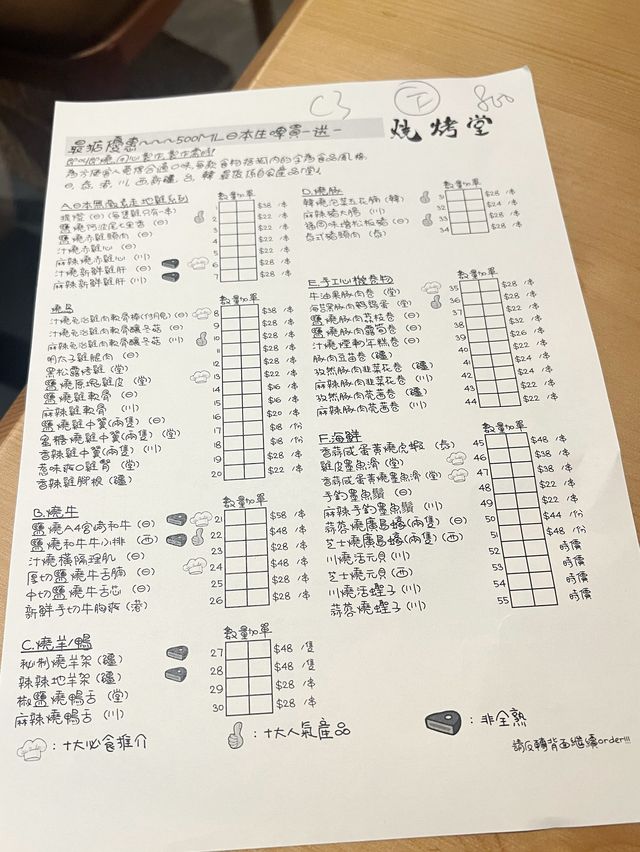 C3
下
800
燒烤堂
最抵優惠~~~500ML日本生啤買一送一
日 泰 港 川 西 新疆, 台, 韓
A.日本無激素走地雞系列
數量 加單
提燈 (日) (每隻雞只有一串) 1 $38 /串
鹽燒阿波尾七里香 (日) 2 $22 /串
鹽燒赤雞頸肉 (日) 3 $22 /串
汁燒赤雞心 (日) 4 $22 /串
麻辣燒赤雞心 (川) 5 $22 /串
汁燒新鮮雞肝 (日) 6 $28 /串
麻辣新鮮雞肝 (川) 7 $28 /串
燒鳥
數量 加單
8 $38 /串
汁燒免治雞肉軟骨釀冬菇 (日) 9 $28 /串
麻辣免治雞肉軟骨釀冬菇 (川) 10 $28 /串
明太子雞腿肉 (日) 11 $28 /串
黑松露烤雞 (堂) 12 $28 /串
鹽燒原塊雞皮 (堂) 13 $22 /串
鹽燒雞軟骨 (日) 14 $16 /串
麻辣雞軟骨 (川) 15 $16 /串
鹽燒雞中翼(兩隻) (日) 16 $20 /串
蜜糖燒雞中翼(兩隻) (堂) 17 $18 /份
香辣雞中翼(兩隻) (川) 18 $18 /份
惹味爽口雞腎 (堂) 19 $28 /串
香辣雞腳根 (疆) 20 $22 /串
B.燒牛
數量 加單
鹽燒A4宮崎和牛 (日) 21 $58 /串
鹽燒和牛牛小排 (西) 22 $48 /串
汁燒橫隔理肌 (日) 23 $28 /串
厚切鹽燒牛舌 (日) 24 $48 /串
中切鹽燒牛舌芯 (日) 25 $28 /串
新鮮手切牛胸爽 (港) 26 $28 /串
C.燒羊/鴨
數量 加單
秘制燒羊架 (疆) 27 $48 /隻
辣辣地羊架 (疆) 28 $48 /隻
椒鹽燒鴨舌 (堂) 29 $28 /串
麻辣燒鴨舌 (川) 30 $28 /串
D.燒豚
數量 加單
韓燒泡菜五花腩 (韓) 31 $28 /串
麻辣豬大腸 (川) 32 $24 /串
福岡味噌松板豬 (日) 33 $28 /串
泰式豬頸肉 (泰) 34 $28 /串
E.手工心機卷物
數量 加單
牛油果豚肉卷 (堂) 35 $28 /串
海苔黑豚肉鵪鶉蛋 (堂) 36 $28 /串
鹽燒豚肉荔枝卷 (日) 37 $22 /串
鹽燒豚肉露筍卷 (日) 38 $26 /串
汁燒煙鴨年糕卷 (日) 39 $32 /串
豚肉豆苗卷 (疆) 40 $24 /串
孜然豚肉韭菜花卷 (疆) 41 $22 /串
麻辣豚肉韭菜花卷 (川) 42 $24 /串
孜然豚肉芫茜卷 (疆) 43 $22 /串
麻辣豚肉芫茜卷 (川) 44 $22 /串
F.海鮮
數量 加單
香蒜咸蛋黃燒虎蝦 (泰) 45 $48 /串
雞皮墨魚滑 (堂) 46 $38 /串
香蒜咸蛋黃燒墨魚滑 (堂) 47 $38 /串
手釣墨魚鬚 (日) 48 $28 /串
麻辣手釣墨魚鬚 (川) 49 $28 /串
蒜蓉燒廣島蠔(兩隻) (日) 50 $44 /份
芝士燒廣島蠔(兩隻) (西) 51 $48 /份
川燒活元貝 (川) 52 時價
芝士燒元貝 (西) 53 時價
川燒活蟶子 (川) 54 時價
蒜蓉燒蟶子 (川) 55 時價
: 十大必食推介
: 十大人氣產品
: 非全熟
請反轉背面繼續order!!!